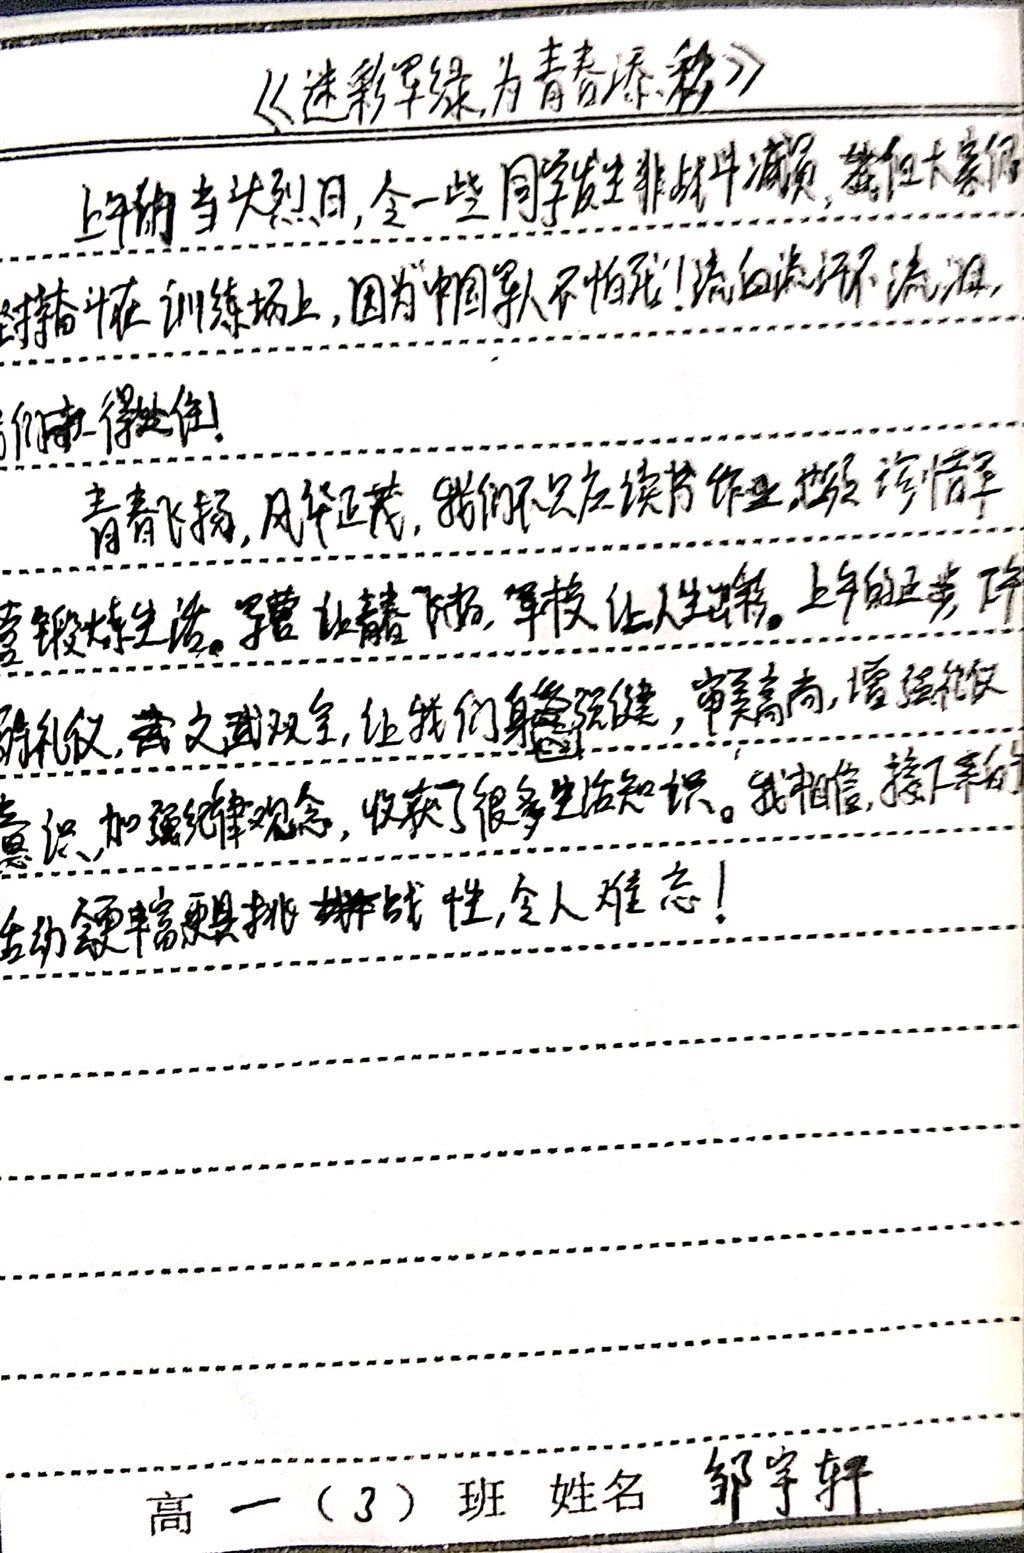 《迷彩军绿，为青春添彩》
上午的当头烈日，令一些同学发生非战斗减员，但大家仍
坚持奋斗在训练场上，因为“中国军人不怕死！流血流汗不流泪，
我们扛得住！
青春飞扬，风华正茂，我们不只应读书作业，也须珍惜军
营锻炼生活。军营让青春飞扬，军校让人生出彩。上午的正步，下午
的礼仪，文武双全，让我们身强健，审美高尚，增强礼仪
意识，加强纪律观念，收获了很多生活知识。我相信，接下来的
活动会更丰富更具挑战性，令人难忘！
高一（3）班 姓名 邹宇轩